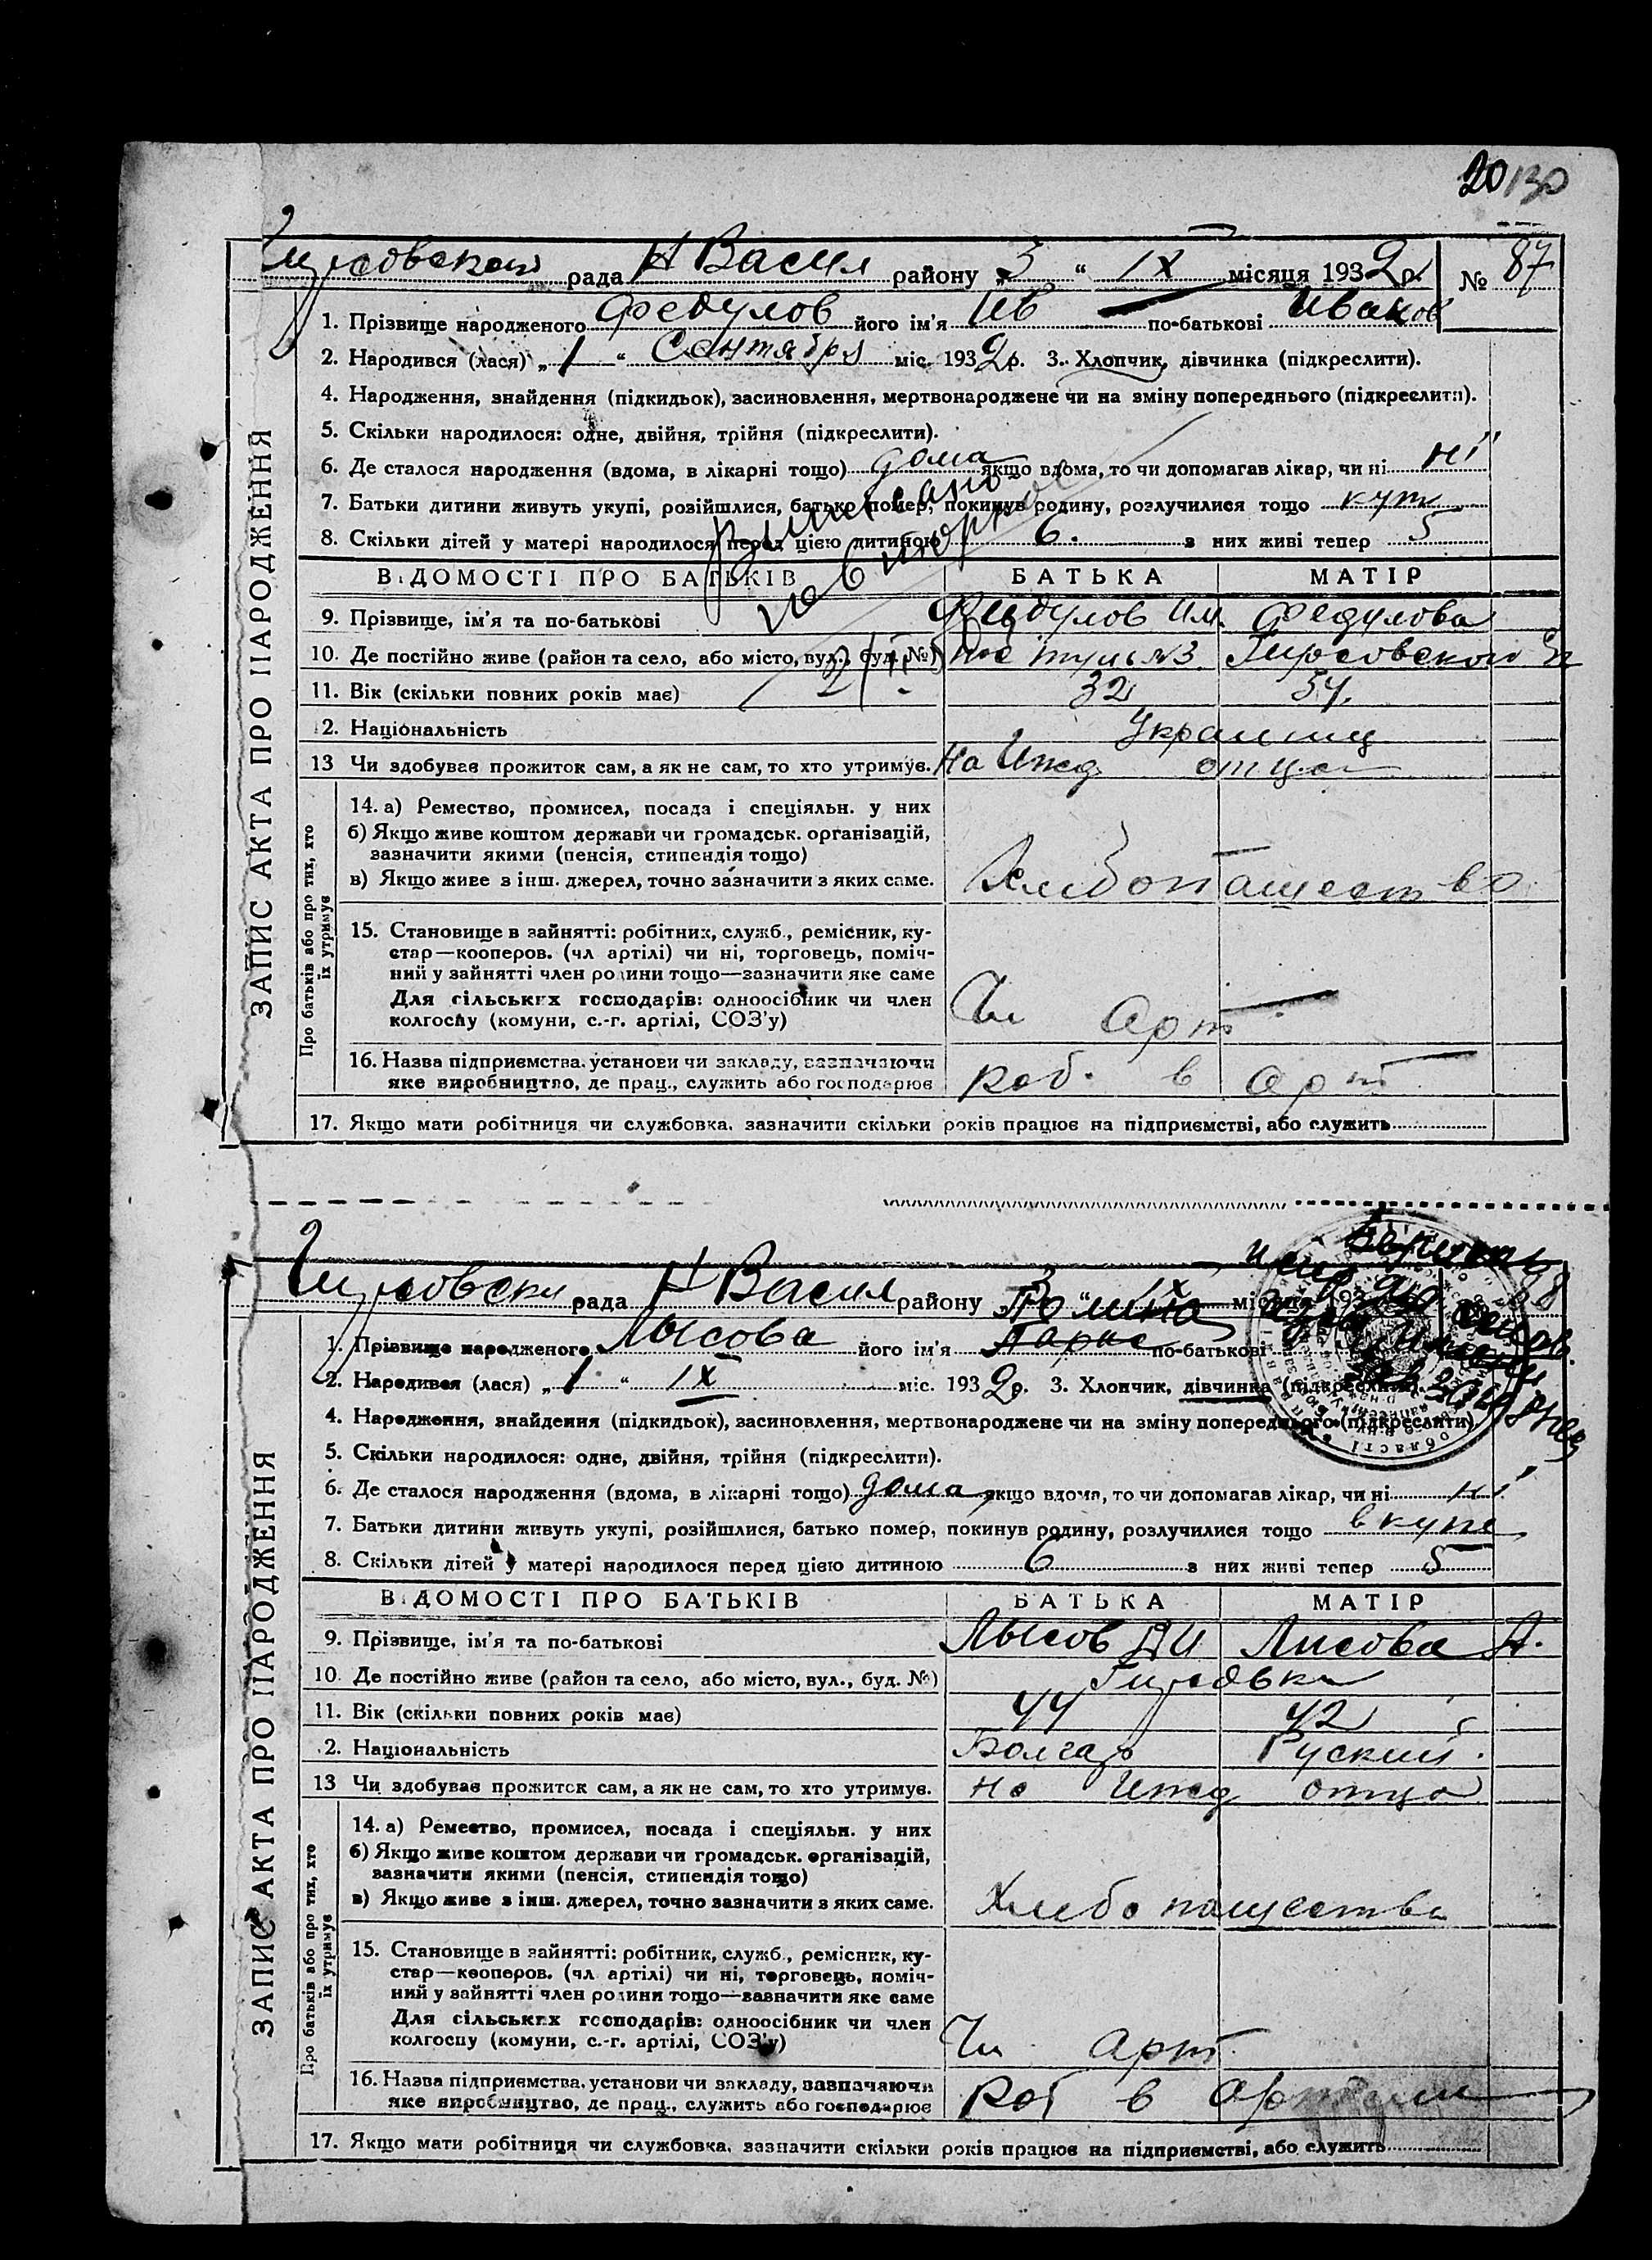 20 130
рада Н Васил району „3“ IX місяця 1932 р. № 87
1. Прізвище народженого Федулов його ім'я Ив по-батькові Иванов
2. Народився (лася) „1“ Сентября міс. 1932 р. 3. Хлопчик, дівчинка (підкреслити).
4. Народження, знайдення (підкидьок), засиновлення, мертвонароджене чи на зміну попереднього (підкреслити).
5. Скільки народилося: одне, двійня, трійня (підкреслити).
6. Де сталося народження (вдома, в лікарні тощо) дома якщо вдома, то чи допомагав лікар, чи ні ні
7. Батьки дитини живуть укупі, розійшлися, батько помер, покинув родину, розлучилися тощо
8. Скільки дітей у матері народилося перед цією дитиною 6. з них живі тепер 5
Выписано
повторное
ВІДОМОСТІ ПРО БАТЬКІВ БАТЬКА МАТІР
9. Прізвище, ім'я та по-батькові Федулов Ив. Федулова
10. Де постійно живе (район та село, або місто, вул., буд. №)
11. Вік (скільки повних років має) 32 34
12. Національність Украинц
13 Чи здобував прожиток сам, а як не сам, то хто утримув. На Ижд отца
ЗАПИС АКТА ПРО НАРОДЖЕННЯ
Про батьків або про тих, хто їх утримує
14. а) Ремество, промисел, посада і спеціяльн. у них
б) Якщо живе коштом держави чи громадськ. організацій,
зазначити якими (пенсія, стипендія тощо)
в) Якщо живе з інш. джерел, точно зазначити з яких саме. Хлебопашество
15. Становище в зайнятті: робітник, служб., ремісник, ку-
стар—кооперов. (чл артілі) чи ні, торговець, поміч-
ний у зайнятті член родини тощо—зазначити яке саме
Для сільських господарів: одноосібник чи член
колгоспу (комуни, с.-г. артілі, СОЗ'у) Чл арт
16. Назва підприємства, установи чи закладу, зазначаючи
яке виробництво, де прац., служить або господарює роб. в арт
17. Якщо мати робітниця чи службовка, зазначити скільки років працює на підприємстві, або служить
рада Н Васил району „3“ IX місяця 193 88
1. Прізвище народженого Лысова його ім'я по-батькові
2. Народився (лася) „1“ IX міс. 1932 р. 3. Хлопчик, дівчинка (підкреслити).
4. Народження, знайдення (підкидьок), засиновлення, мертвонароджене чи на зміну попереднього (підкреслити).
5. Скільки народилося: одне, двійня, трійня (підкреслити).
6. Де сталося народження (вдома, в лікарні тощо) дома якщо вдома, то чи допомагав лікар, чи ні ні
7. Батьки дитини живуть укупі, розійшлися, батько помер, покинув родину, розлучилися тощо вкупе
8. Скільки дітей у матері народилося перед цією дитиною 6 з них живі тепер 5
ВІДОМОСТІ ПРО БАТЬКІВ БАТЬКА МАТІР
9. Прізвище, ім'я та по-батькові Лысов Лисова А.
10. Де постійно живе (район та село, або місто, вул., буд. №)
11. Вік (скільки повних років має) 44 42
12. Національність Болгар Руский
13 Чи здобував прожиток сам, а як не сам, то хто утримув. на Ижд отца
ЗАПИС АКТА ПРО НАРОДЖЕННЯ
Про батьків або про тих, хто їх утримує
14. а) Ремество, промисел, посада і спеціяльн. у них
б) Якщо живе коштом держави чи громадськ. організацій,
зазначити якими (пенсія, стипендія тощо)
в) Якщо живе з інш. джерел, точно зазначити з яких саме. Хлебопашества
15. Становище в зайнятті: робітник, служб., ремісник, ку-
стар—кооперов. (чл артілі) чи ні, торговець, поміч-
ний у зайнятті член родини тощо—зазначити яке саме
Для сільських господарів: одноосібник чи член
колгоспу (комуни, с.-г. артілі, СОЗ'у) Чл арт.
16. Назва підприємства, установи чи закладу, зазначаючи
яке виробництво, де прац., служить або господарює роб в артели
17. Якщо мати робітниця чи службовка, зазначити скільки років працює на підприємстві, або служить